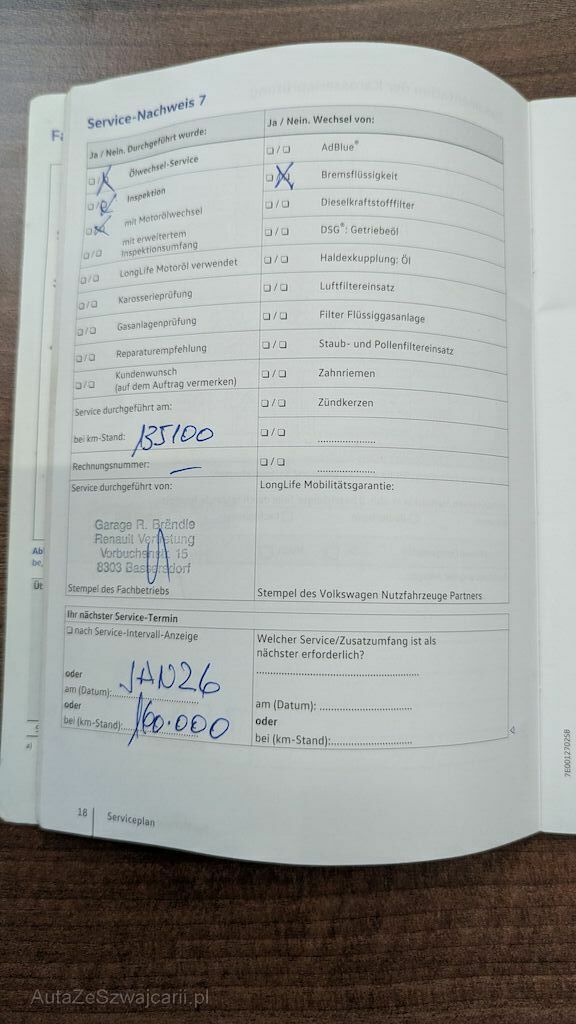 Service-Nachweis 7
Ja / Nein. Durchgeführt wurde:
❑ / ❑ Ölwechsel-Service
❑ / ❑ Inspektion
❑ / ❑ mit Motorölwechsel
❑ / ❑ mit erweitertem
Inspektionsumfang
❑ / ❑ LongLife Motoröl verwendet
❑ / ❑ Karosserieprüfung
❑ / ❑ Gasanlagenprüfung
❑ / ❑ Reparaturempfehlung
❑ / ❑ Kundenwunsch
(auf dem Auftrag vermerken)
Service durchgeführt am:
bei km-Stand: 135100
Rechnungsnummer: —
Ja / Nein. Wechsel von:
❑ / ❑ AdBlue®
❑ / ❑ Bremsflüssigkeit
❑ / ❑ Dieselkraftstofffilter
❑ / ❑ DSG®: Getriebeöl
❑ / ❑ Haldexkupplung: Öl
❑ / ❑ Luftfiltereinsatz
❑ / ❑ Filter Flüssiggasanlage
❑ / ❑ Staub- und Pollenfiltereinsatz
❑ / ❑ Zahnriemen
❑ / ❑ Zündkerzen
❑ / ❑ ....................
❑ / ❑ ....................
Service durchgeführt von:
Garage R. Brändle
Renault Vertretung
Vorbuchenstr. 15
8303 Bassersdorf
Stempel des Fachbetriebs
LongLife Mobilitätsgarantie:
Stempel des Volkswagen Nutzfahrzeuge Partners
Ihr nächster Service-Termin
❑ nach Service-Intervall-Anzeige
oder
am (Datum): JAN 26
oder
bei (km-Stand): 160.000
Welcher Service/Zusatzumfang ist als
nächster erforderlich?
....................
am (Datum): ....................
oder
bei (km-Stand): ....................
18 Serviceplan
7E0012702SB
AutaZeSzwajcarii.pl